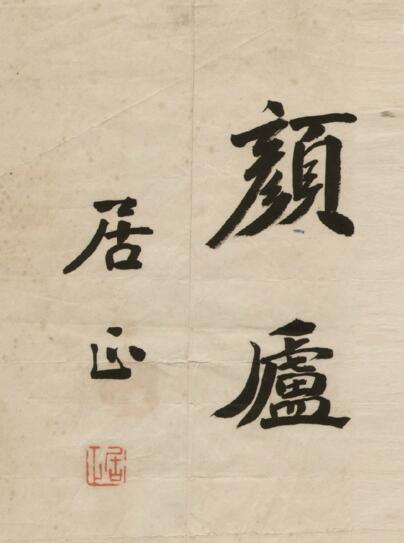 顏廬
居正
居正